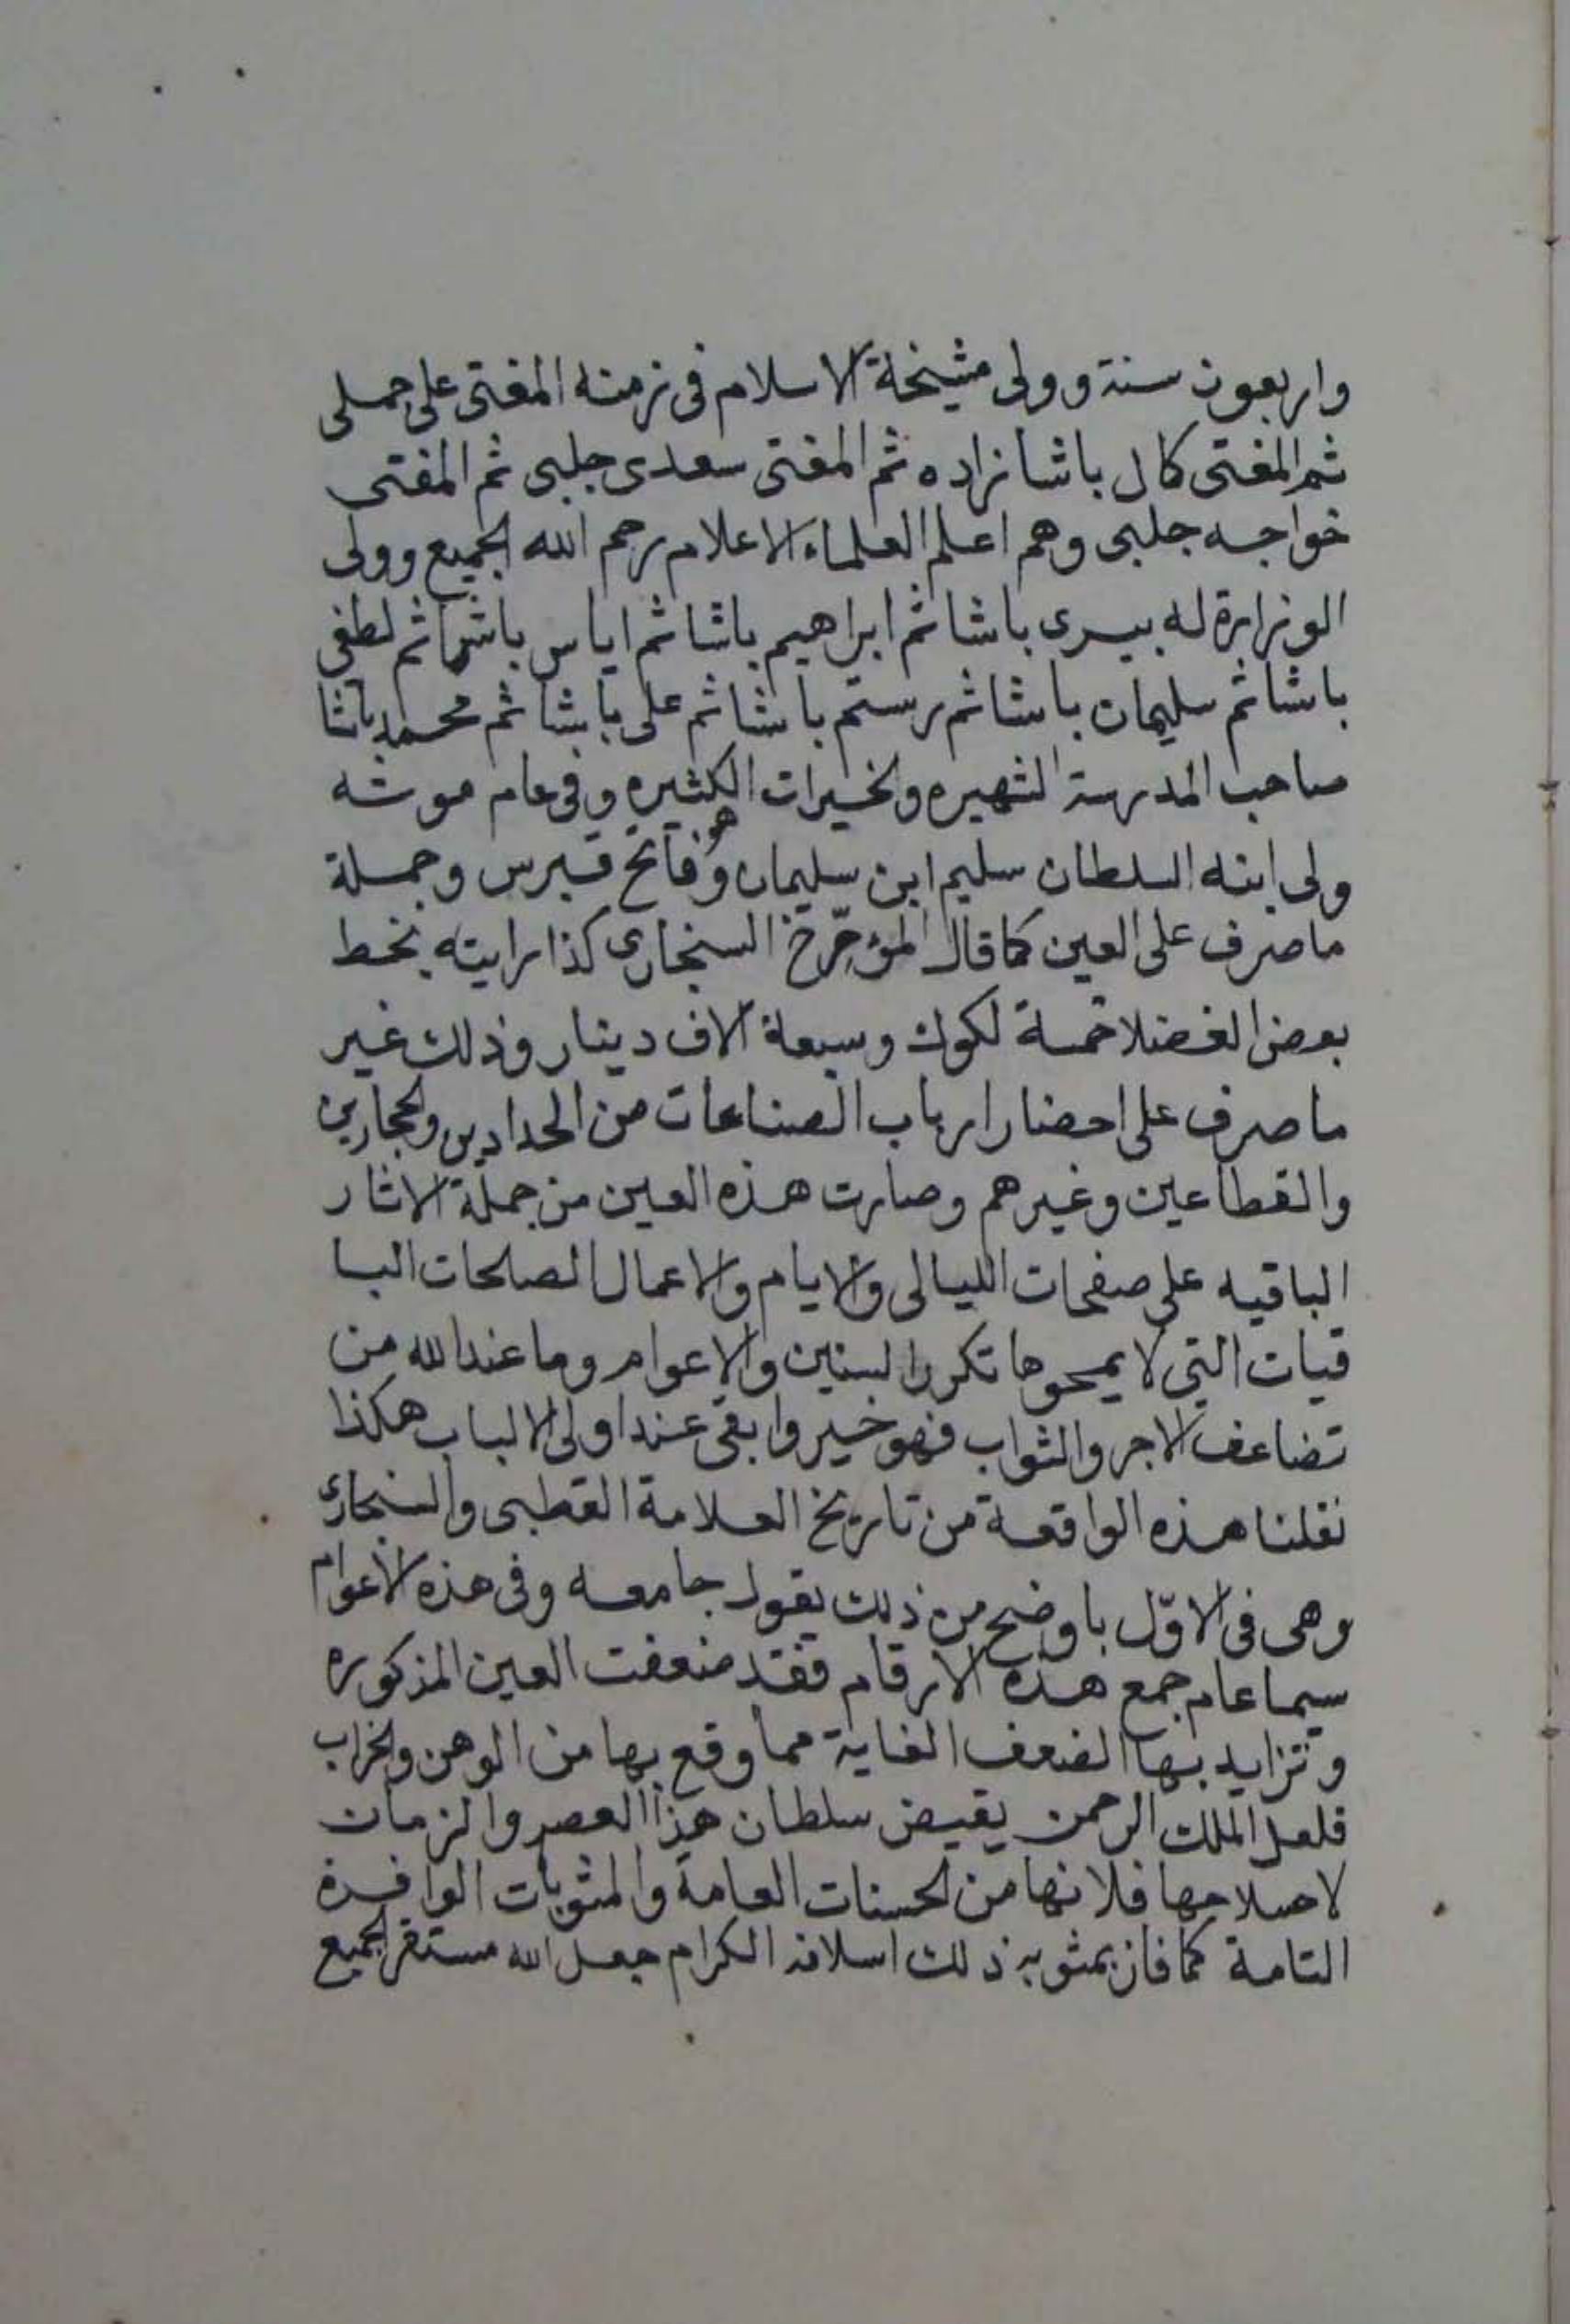 واربعون سنة وولى مشيخة الاسلام فى زمنه المفتى على جملى
ثم المفتى كمال باشا زاده ثم المفتى سعدى جلبى ثم المفتى
خواجه جلبى وهم اعلم العلماء الاعلام رحم الله الجميع وولى
الوزارة له بيرى باشا ثم ابراهيم باشا ثم اياس باشا ثم لطفى
باشا ثم سليمان باشا ثم رستم باشا ثم على باشا ثم محمد باشا
صاحب المدرسة الشهيره والخيرات الكثيره وفى عام موته
ولى ابنه السلطان سليم ابن سليمان وهو فاتح قبرس وجملة
ما صرف على العين كما قال المؤرّخ السنجارى كذا رايته بخط
بعض الفضلا خمسة لكوك وسبعة الاف دينار وذلك غير
ما صرف على احضار ارباب الصناعات من الحدادين والحجارين
والقطاعين وغيرهم وصارت هذه العين من جملة الاثار
الباقيه على صفحات الليالى والايام والاعمال الصلحات البا
قيات التى لا يمحوها تكرر السنين والاعوام وما عند الله من
تضاعف الاجر والثواب فهو خير وابقى عند اولى الالباب هكذا
نقلنا هذه الواقعة من تاريخ العلامة القطبى والسنجارى
وهى فى الاوّل باوضح من ذلك يقول جامعه وفى هذه الاعوام
سيما عام جمع هذه الارقام فقد ضعفت العين المذكوره
وتزايد بها الضعف الغاية مما وقع بها من الوهن والخراب
فلعل الملك الرحمن يقيض سلطان هذا العصر والزمان
لاصلاحها فلانها من الحسنات العامة والمثوبات الوافرة
التامة كما فاز بمثوبة ذلك اسلافه الكرام جعل الله مستقر الجميع